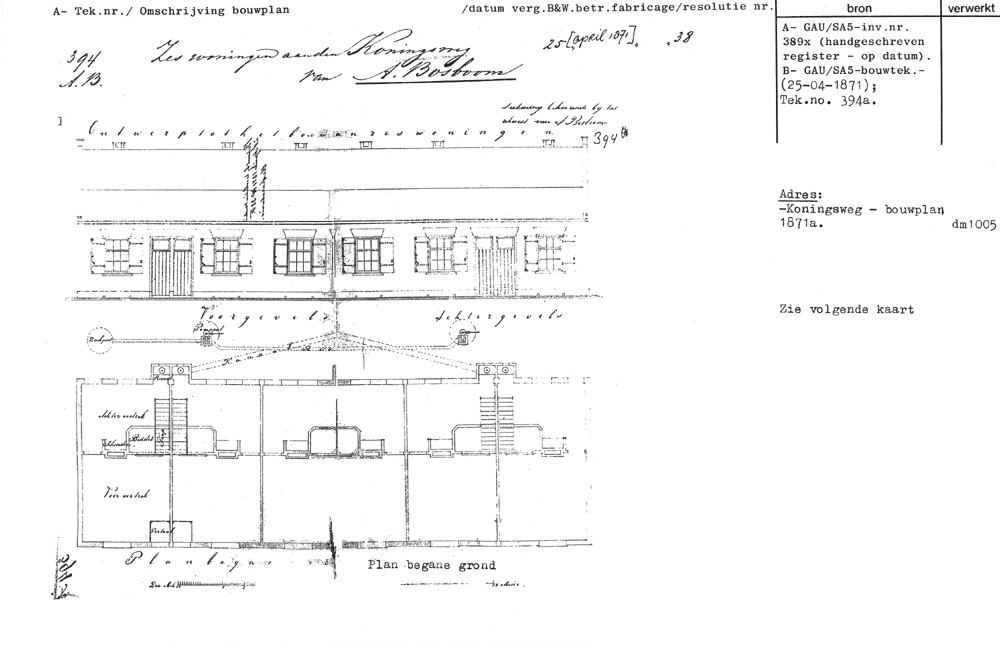 A- Tek.nr./ Omschrijving bouwplan
/datum verg.B&W.betr.fabricage/resolutie nr.
bron
verwerkt
394
A.B.
Zes woningen aan den Koningsweg
van A. Bosboom
25 [april 1871]. 38
A- GAU/SA5-inv.nr.
389x (handgeschreven
register - op datum).
B- GAU/SA5-bouwtek.-
(25-04-1871);
Tek.no. 394a.
Ontwerp tot het bouwen van zes woningen
394
Adres:
-Koningsweg - bouwplan
1871a.
dm1005
Zie volgende kaart
Voorgevel
Achtergevels
Achtervertrek
Bedstee
Voorvertrek
Portaal
Plan begane
Plan begane grond
394